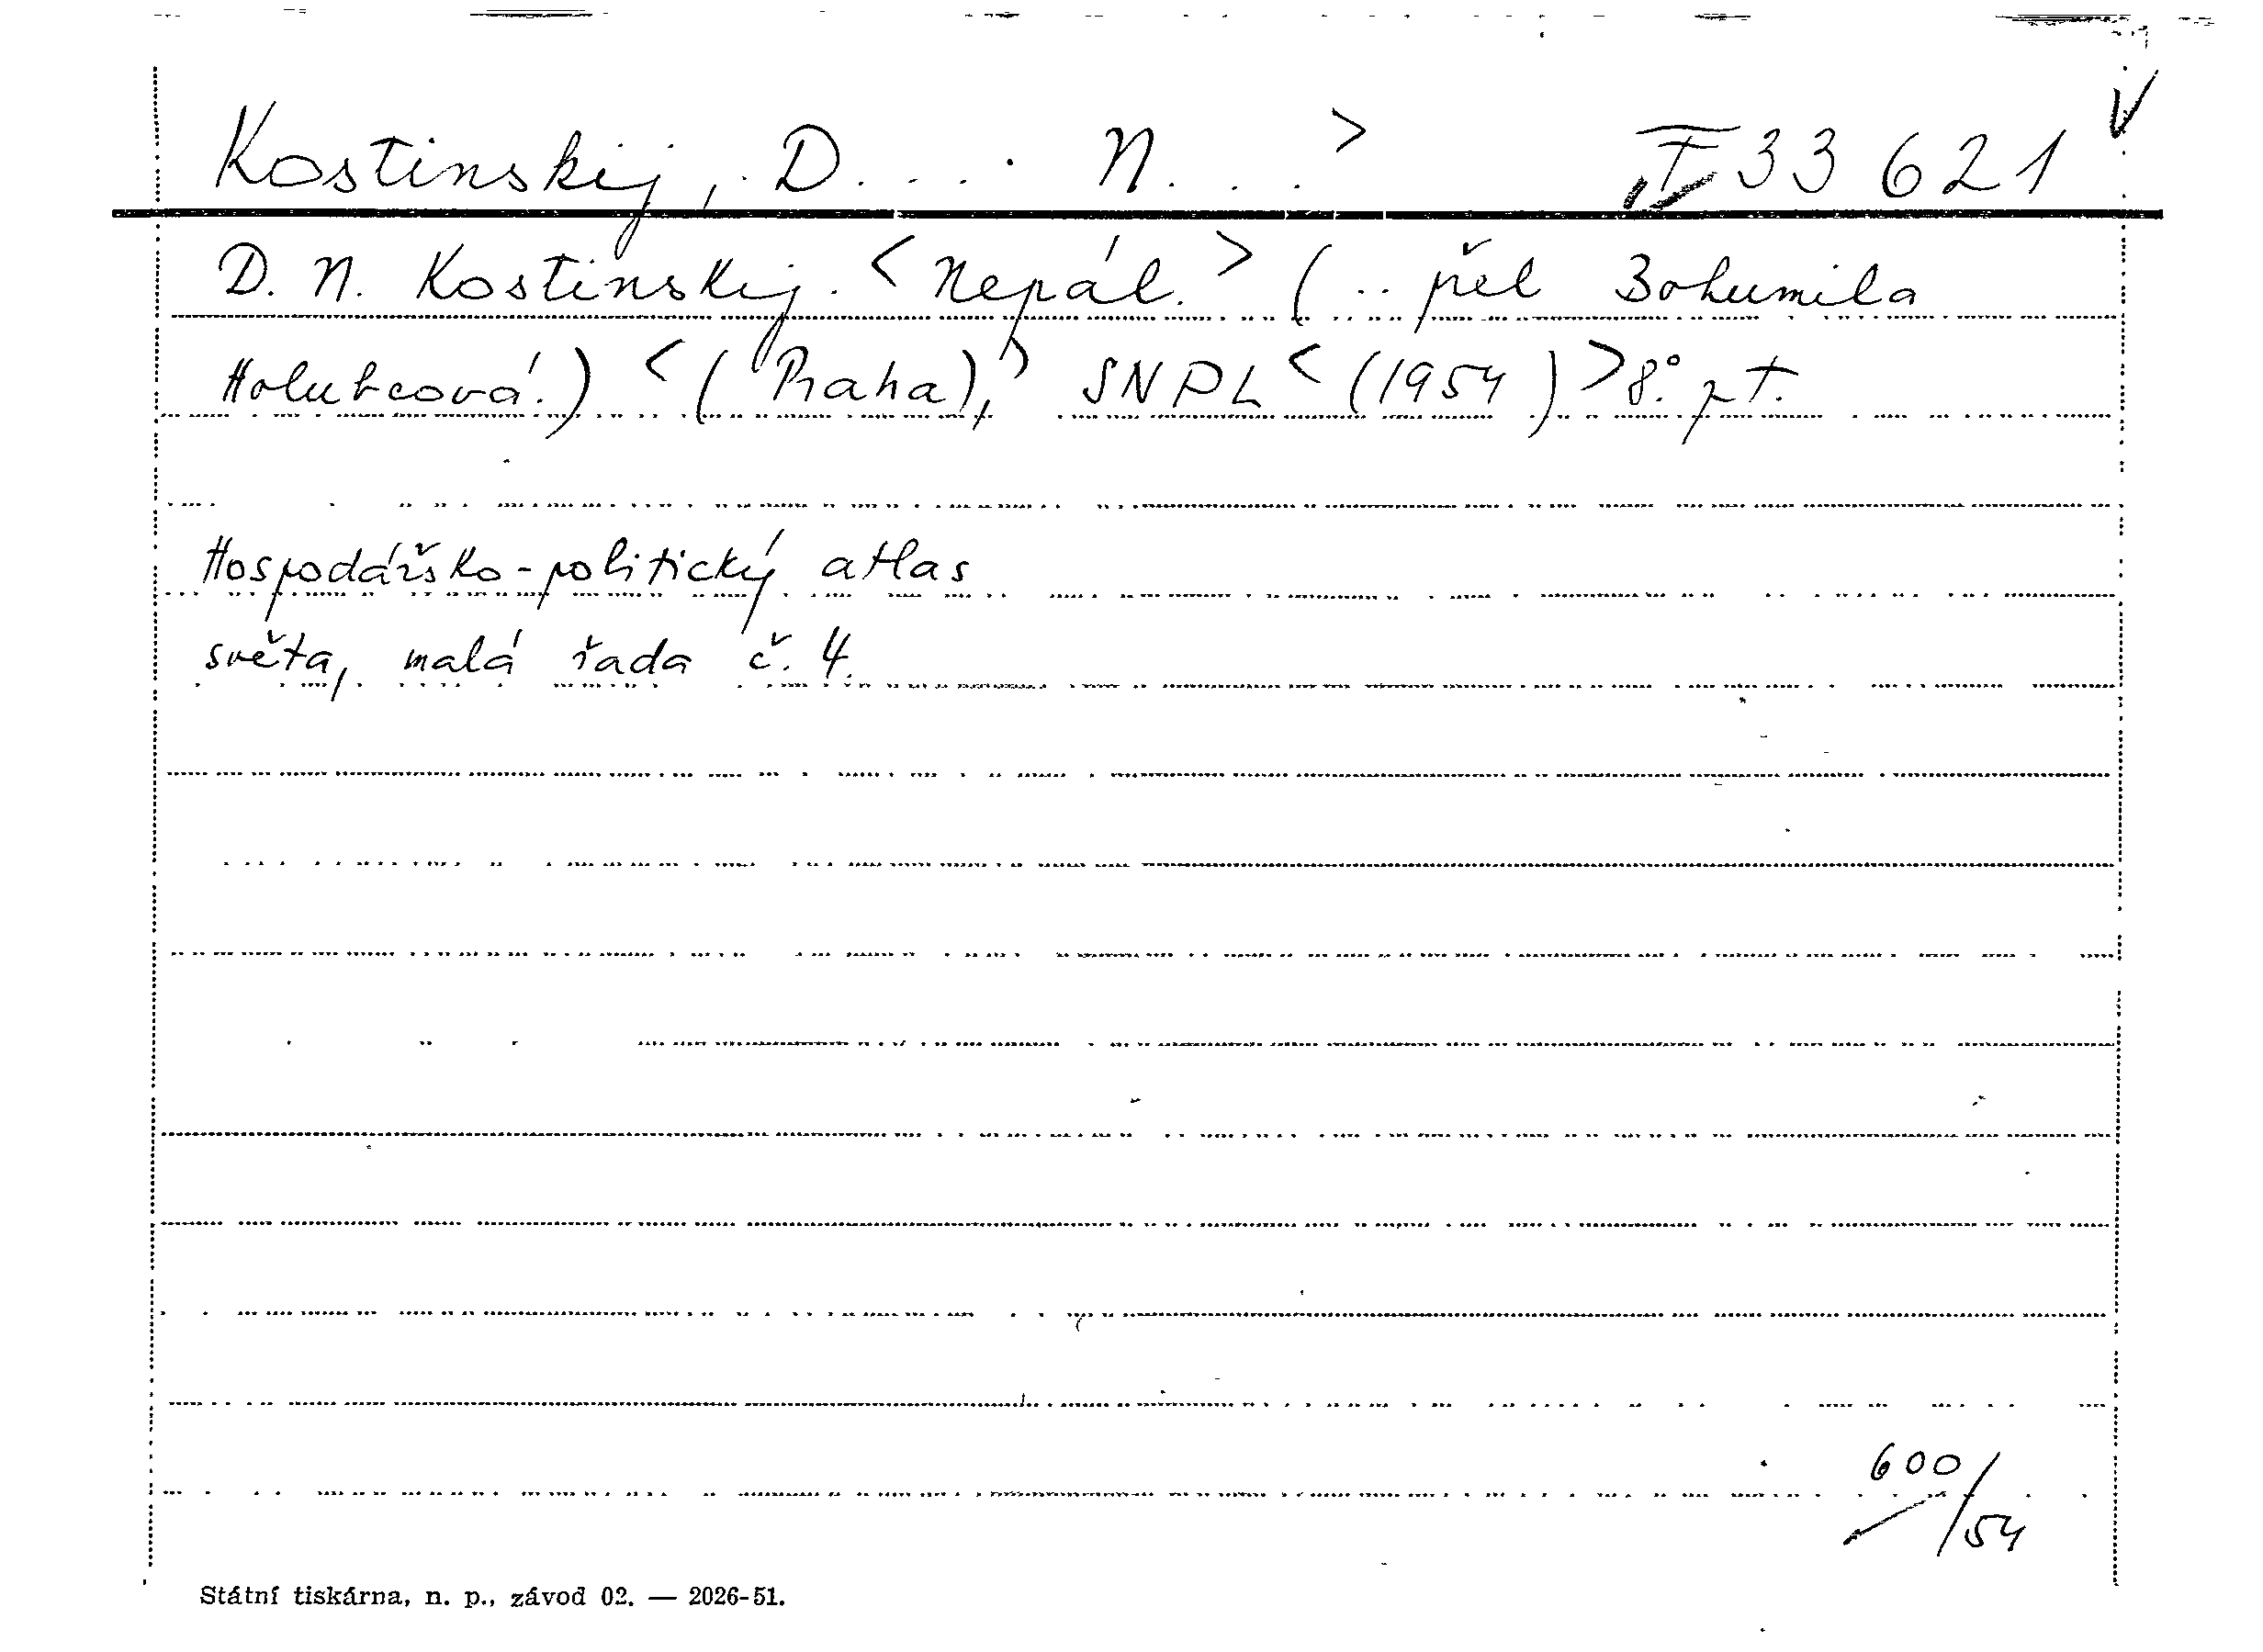 Kostinskij, D... . N. . . > I 33 621
D. N. Kostinskij. < Nepál. > ( .. přel Bohumila
Holubcová.) < (Praha), > SNPL < (1954) > 8° pt.
Hospodářsko-politický atlas
světa, malá řada č. 4.
600/54
Státní tiskárna, n. p., závod 02. — 2026-51.